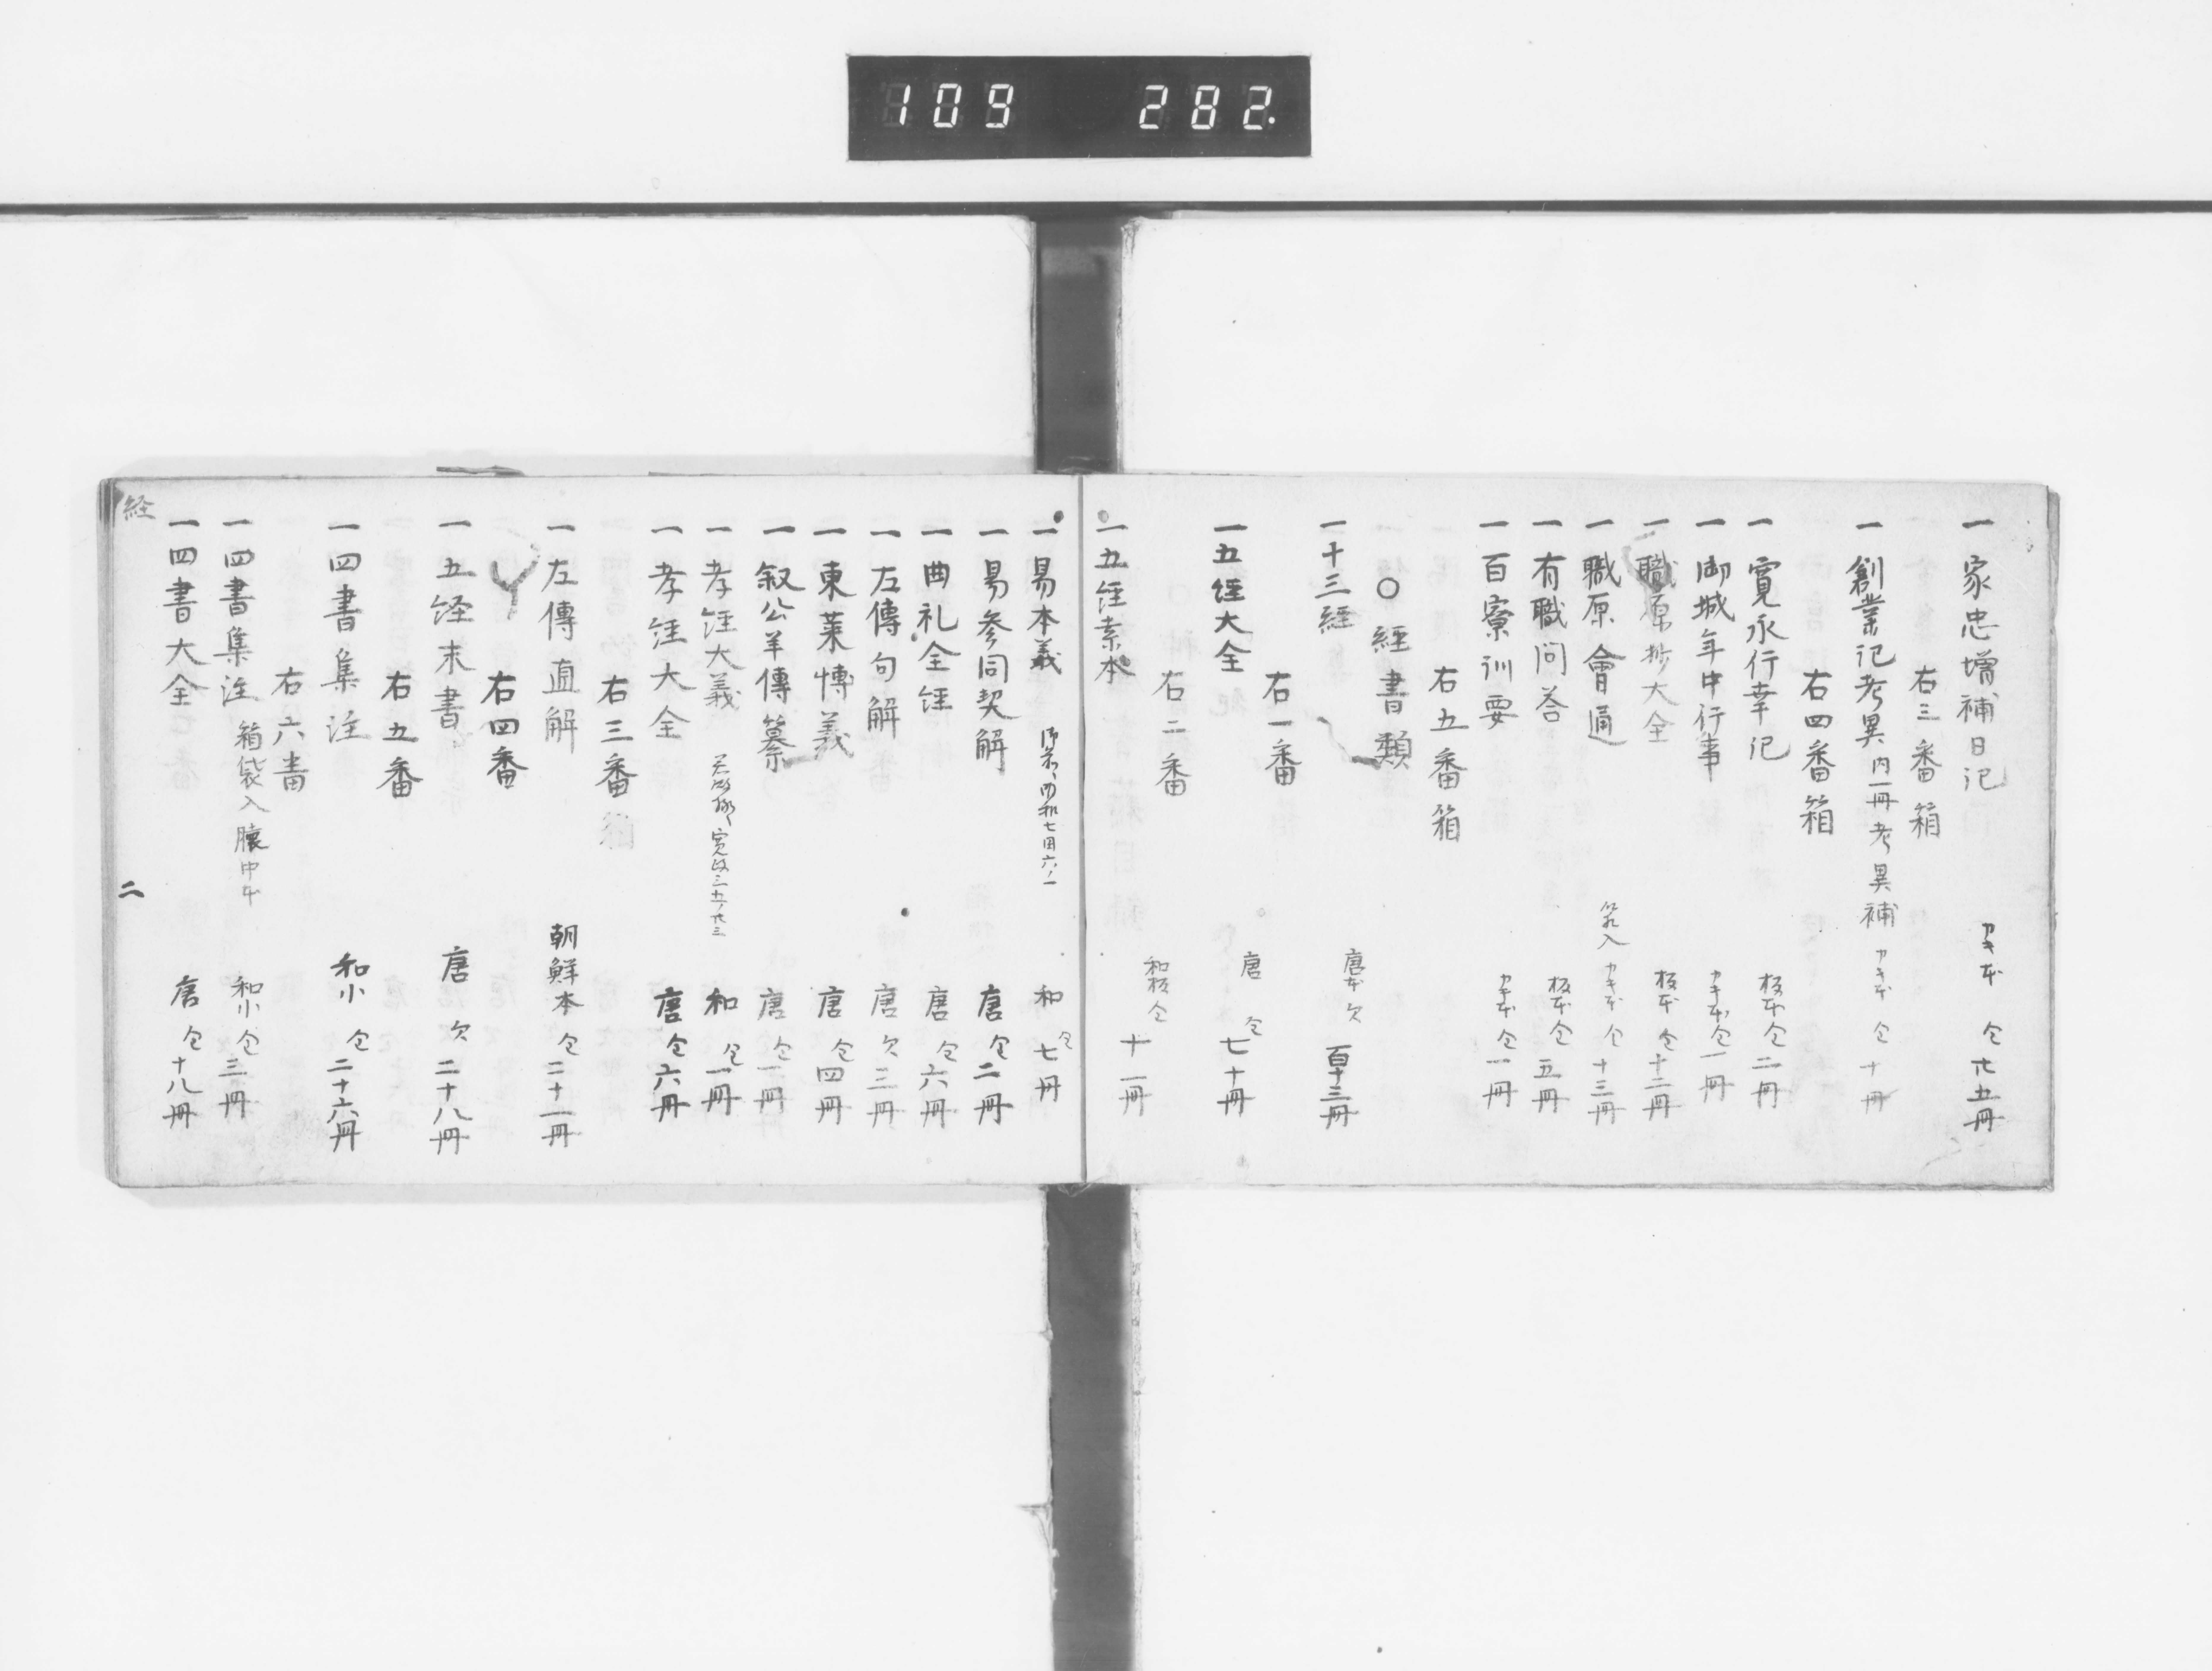 109 282.
一家忠増補日記 カキ本 仝 廿五冊
右三番箱
一創業記考異 内一冊考異補 カキ本 仝 十冊
右四番箱
一寛永行幸記 板本 仝 二冊
一御城年中行事 カキ本 仝 一冊
一職原抄大全 板本 仝 十二冊
一職原會通 入 カキ本 仝 十三冊
一有職問答 板本 仝 五冊
一百寮訓要 カキ本 仝 一冊
右五番箱
○經書類
一十三経 唐本 欠 百十三冊
右一番
一五經大全 唐 仝 七十冊
右二番
一五經素本 和板 仝 十一冊
一易本義 和 仝 七冊
一易参同契解 唐 仝 二冊
一曲礼全經 唐 仝 六冊
一左傳句解 唐 欠 三冊
一東莱博義 唐 仝 四冊
一叙公羊傳纂 唐 仝 一冊
一孝經大義 寛政三 和 仝 一冊
一孝經大全 唐 仝 六冊
右三番
一左傳直解 朝鮮本 仝 二十一冊
右四番
一五経末書 唐 欠 二十八冊
右五番
一四書集注 和小 仝 二十六冊
右六番
一四書集注 箱袋入懐中本 和小 仝 三冊
一四書大全 唐 仝 十八冊
経 二